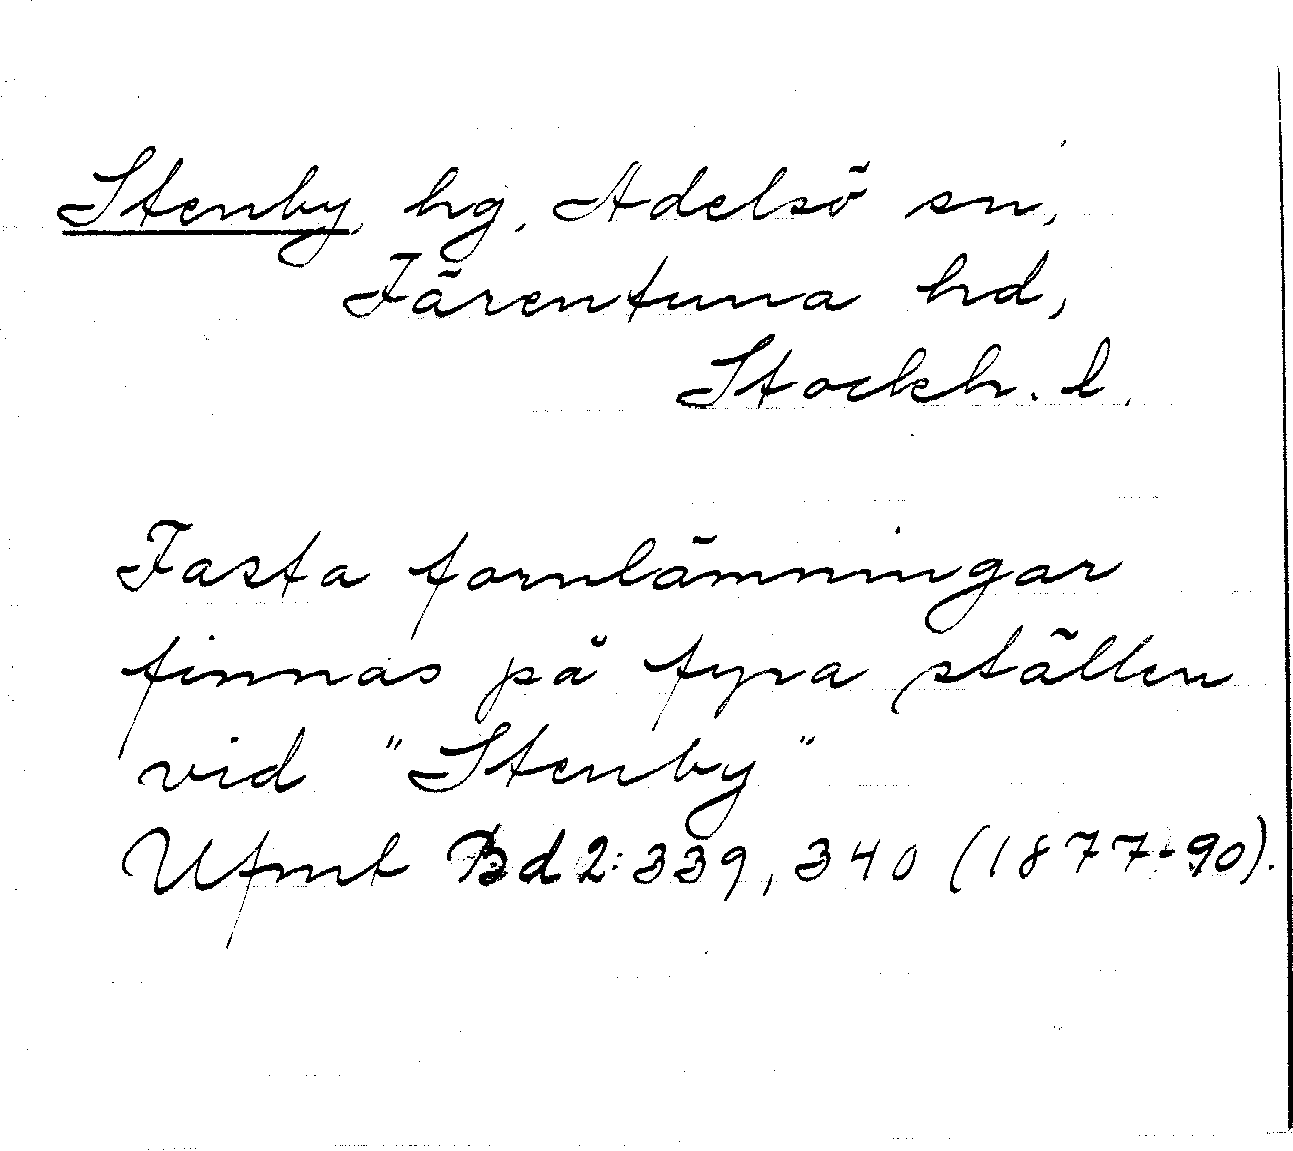 Stenby, hg, Adelsö sn,
Färentuna hd,
Stockh. l.
Fasta fornlämningar
finnas på fyra ställen
vid "Stenby"
Ufmt Bd 2: 339, 340 (1877-90).